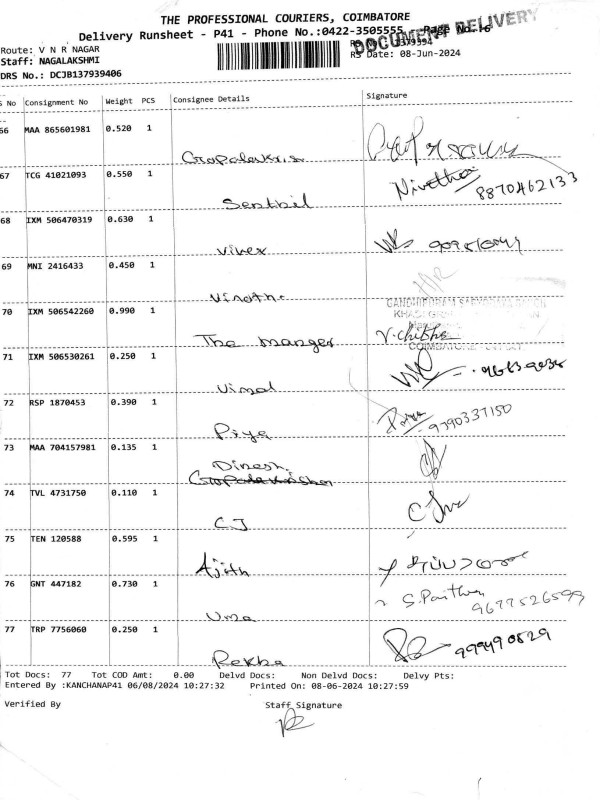 THE PROFESSIONAL COURIERS, COIMBATORE
Delivery Runsheet - P41 - Phone No.:0422-3505555 Page No.
DOCUMENT DELIVERY
Route: V N R NAGAR
Staff: NAGALAKSHMI RS Date: 08-Jun-2024
DRS No.: DCJB137939406
S No Consignment No Weight PCS Consignee Details Signature
66 MAA 865601981 0.520 1
67 TCG 41021093 0.550 1 Nivetha 8870462133
Senthil
68 IXM 506470319 0.630 1
Vivex
69 MNI 2416433 0.450 1
70 IXM 506542260 0.990 1
The manger V.chibha
COIMBATORE
71 IXM 506530261 0.250 1
Vimal
72 RSP 1870453 0.390 1 Priya 9790337150
Piya
73 MAA 704157981 0.135 1
Dinesh
74 TVL 4731750 0.110 1
CJ
75 TEN 120588 0.595 1
Ajith
76 GNT 447182 0.730 1 9677526599
Uma
77 TRP 7756060 0.250 1
Rekha
Tot Docs: 77 Tot COD Amt: 0.00 Delvd Docs: Non Delvd Docs: Delvy Pts:
Entered By :KANCHANAP41 06/08/2024 10:27:32 Printed On: 08-06-2024 10:27:59
Verified By Staff Signature